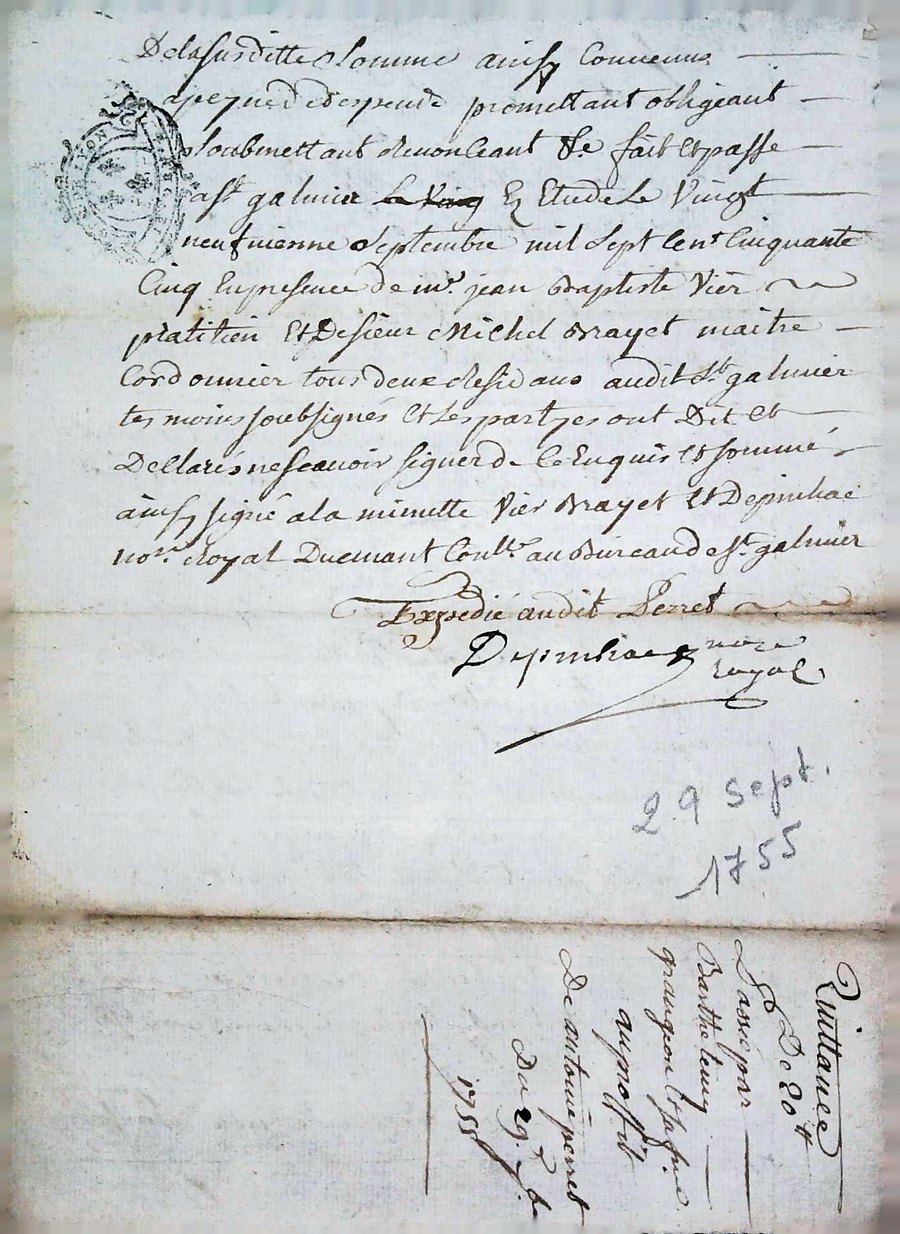 Delasusditte Somme ainsy Convenue
apeyne d despends promettant obligeant
Soubmettant Renonceant &e fait Et passé
a St galmier le Vingt En Etude Le Vingt
neufvienne Septembre mil Sept Cent Cinquante
Cinq En presence de mr. jean Baptiste Vier
pratitien Et De sieur Michel Brayet maitre
Cordonnier tous deux Residans audit St galmier
tesmoins soubsignés Et Les partyes ont Dit Et
Declarés ne scavoir signer de Ce Enquis Et sommé
ainsy signé a la minutte Vier Brayet Et Depinhac
nore. Royal Duemant Conllé au Bureau de St. galmier
Expedié audit Perret
Depinhac nore
royal
LYON
29 sept.
1755
Quittance
De 20 tt
Passé par
Barthelemy
grangeon Et sa
au proffit
De antoine perret
Du 29 7bre
1755